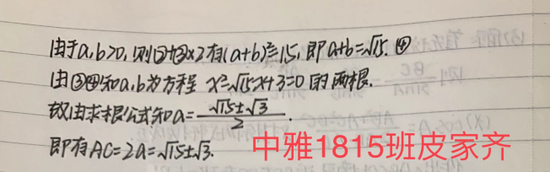 由于a,b>0,则②+③×2有(a+b)²=15,即a+b=√15. ④
由③④知a,b为方程 x²-√15x+3=0 的两根.
故由求根公式知a=(√15±√3)/2.
即有AC=2a=√15±√3.
中雅1815班皮家齐